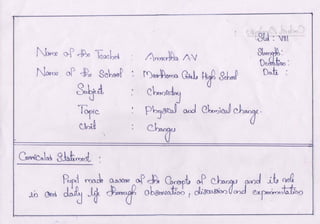 Std : VIII
Name of the Teacher : Anwertha A V
Strength:
Duration:
Name of the School : Marthoma Girls High School
Date :
Subject : Chemistry
Topic : Physical and Chemical change.
Unit : Change
Curricular Statement :
Pupil made aware of the Concepts of change and its role
in our daily life through observation, discussion and experimentation